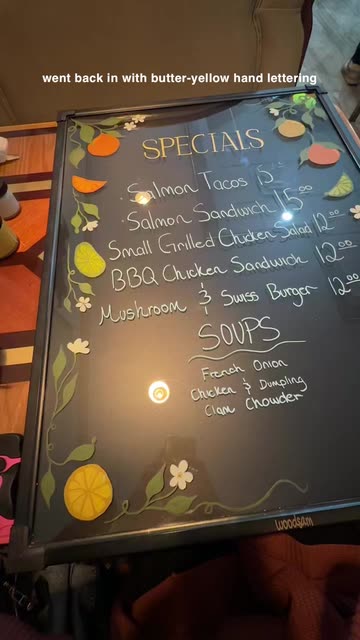 went back in with butter-yellow hand lettering
SPECIALS
· Salmon Tacos 15
· Salmon Sandwich 15.00
Small Grilled Chicken Salad 12.00
BBQ Chicken Sandwich 12.00
Mushroom & Swiss Burger 12.00
SOUPS
French Onion
Chicken & Dumpling
Clam Chowder
woodsam